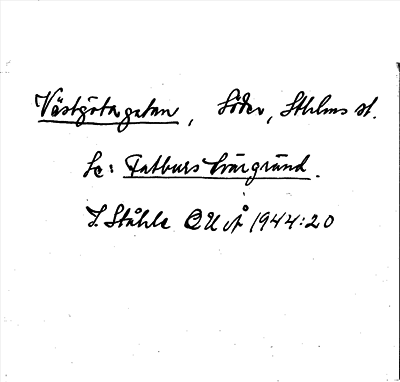 Västgötagatan, Söder, Sthlms st.
Se: Fatburs tvärgränd.
I. Ståhle OUÅ 1944:20